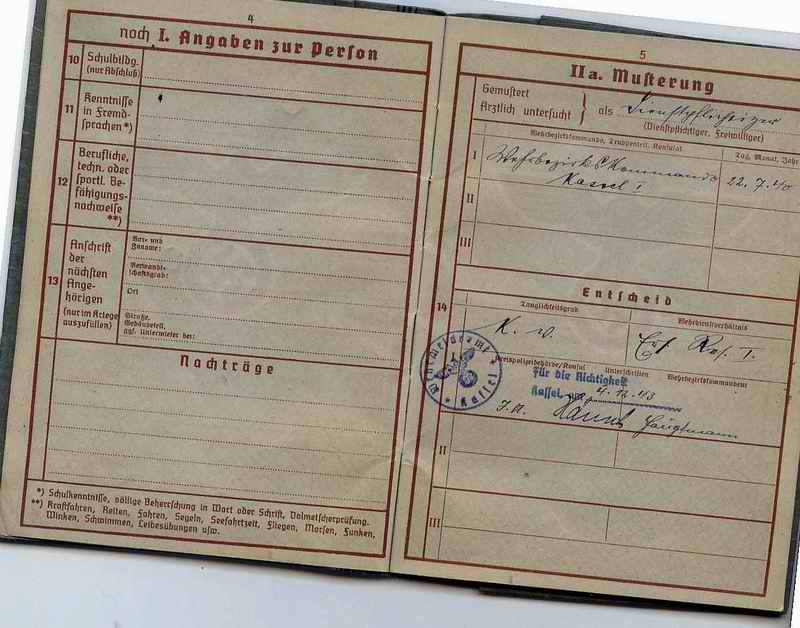 4
noch I. Angaben zur Person
10 Schulbildg. (nur Abschluß)
11 Kenntnisse in Fremd-sprachen*)
12 Berufliche, techn. oder sportl. Be-fähigungs-nachweise **)
13 Anschrift der nächsten Ange-hörigen (nur im Kriege auszufüllen)
Vor- und Zuname:
Verwandt-schaftsgrad:
Ort
Straße, Gebäudeteil, ggf. Untermieter bei:
Nachträge
*) Schulkenntnisse, völlige Beherrschung in Wort oder Schrift, Dolmetscherprüfung.
**) Kraftfahren, Reiten, Fahren, Segeln, Seefahrtzeit, Fliegen, Morsen, Funken,
Winken, Schwimmen, Leibesübungen usw.
5
IIa. Musterung
Gemustert
Ärztlich untersucht } als Dienstpflichtiger
(Dienstpflichtiger, Freiwilliger)
Wehrbezirkskommando, Truppenteil, Konsulat
Tag, Monat, Jahr
I Wehrbezirkskommando 22. 7. 40
Kassel I
II
III
Entscheid
14
Tauglichkeitsgrad
Wehrdienstverhältnis
I
K. v.
Ers. Res. I.
Wehrmeldeamt
Kassel
Kreispolizeibehörde/Konsul
Unterschriften
Wehrbezirkskommandeur
Für die Richtigkeit
Kassel, am 4.12.43
J.A.
Hauptmann
II
III